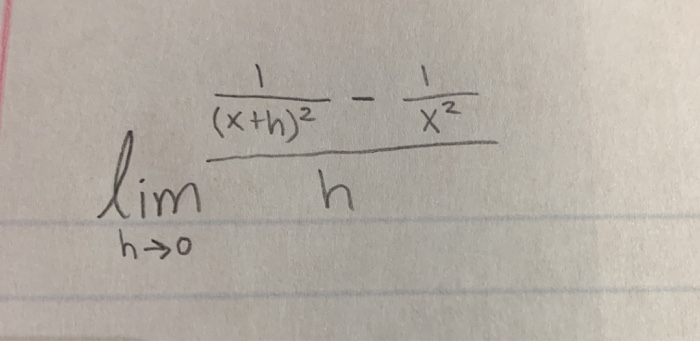 lim h→0 (1/(x+h)² - 1/x²)/h